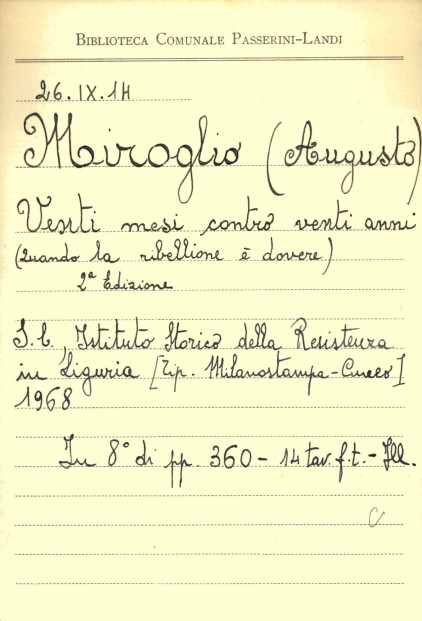 BIBLIOTECA COMUNALE PASSERINI-LANDI
26.IX.14
Miroglio (Augusto)
Venti mesi contro venti anni
(Quando la ribellione è dovere)
2ª Edizione
S.l., Istituto Storico della Resistenza
in Liguria [Tip. Milanostampa-Cuneo]
1968
In 8° di pp. 360 - 14 tav. f.t. - Ill.
C